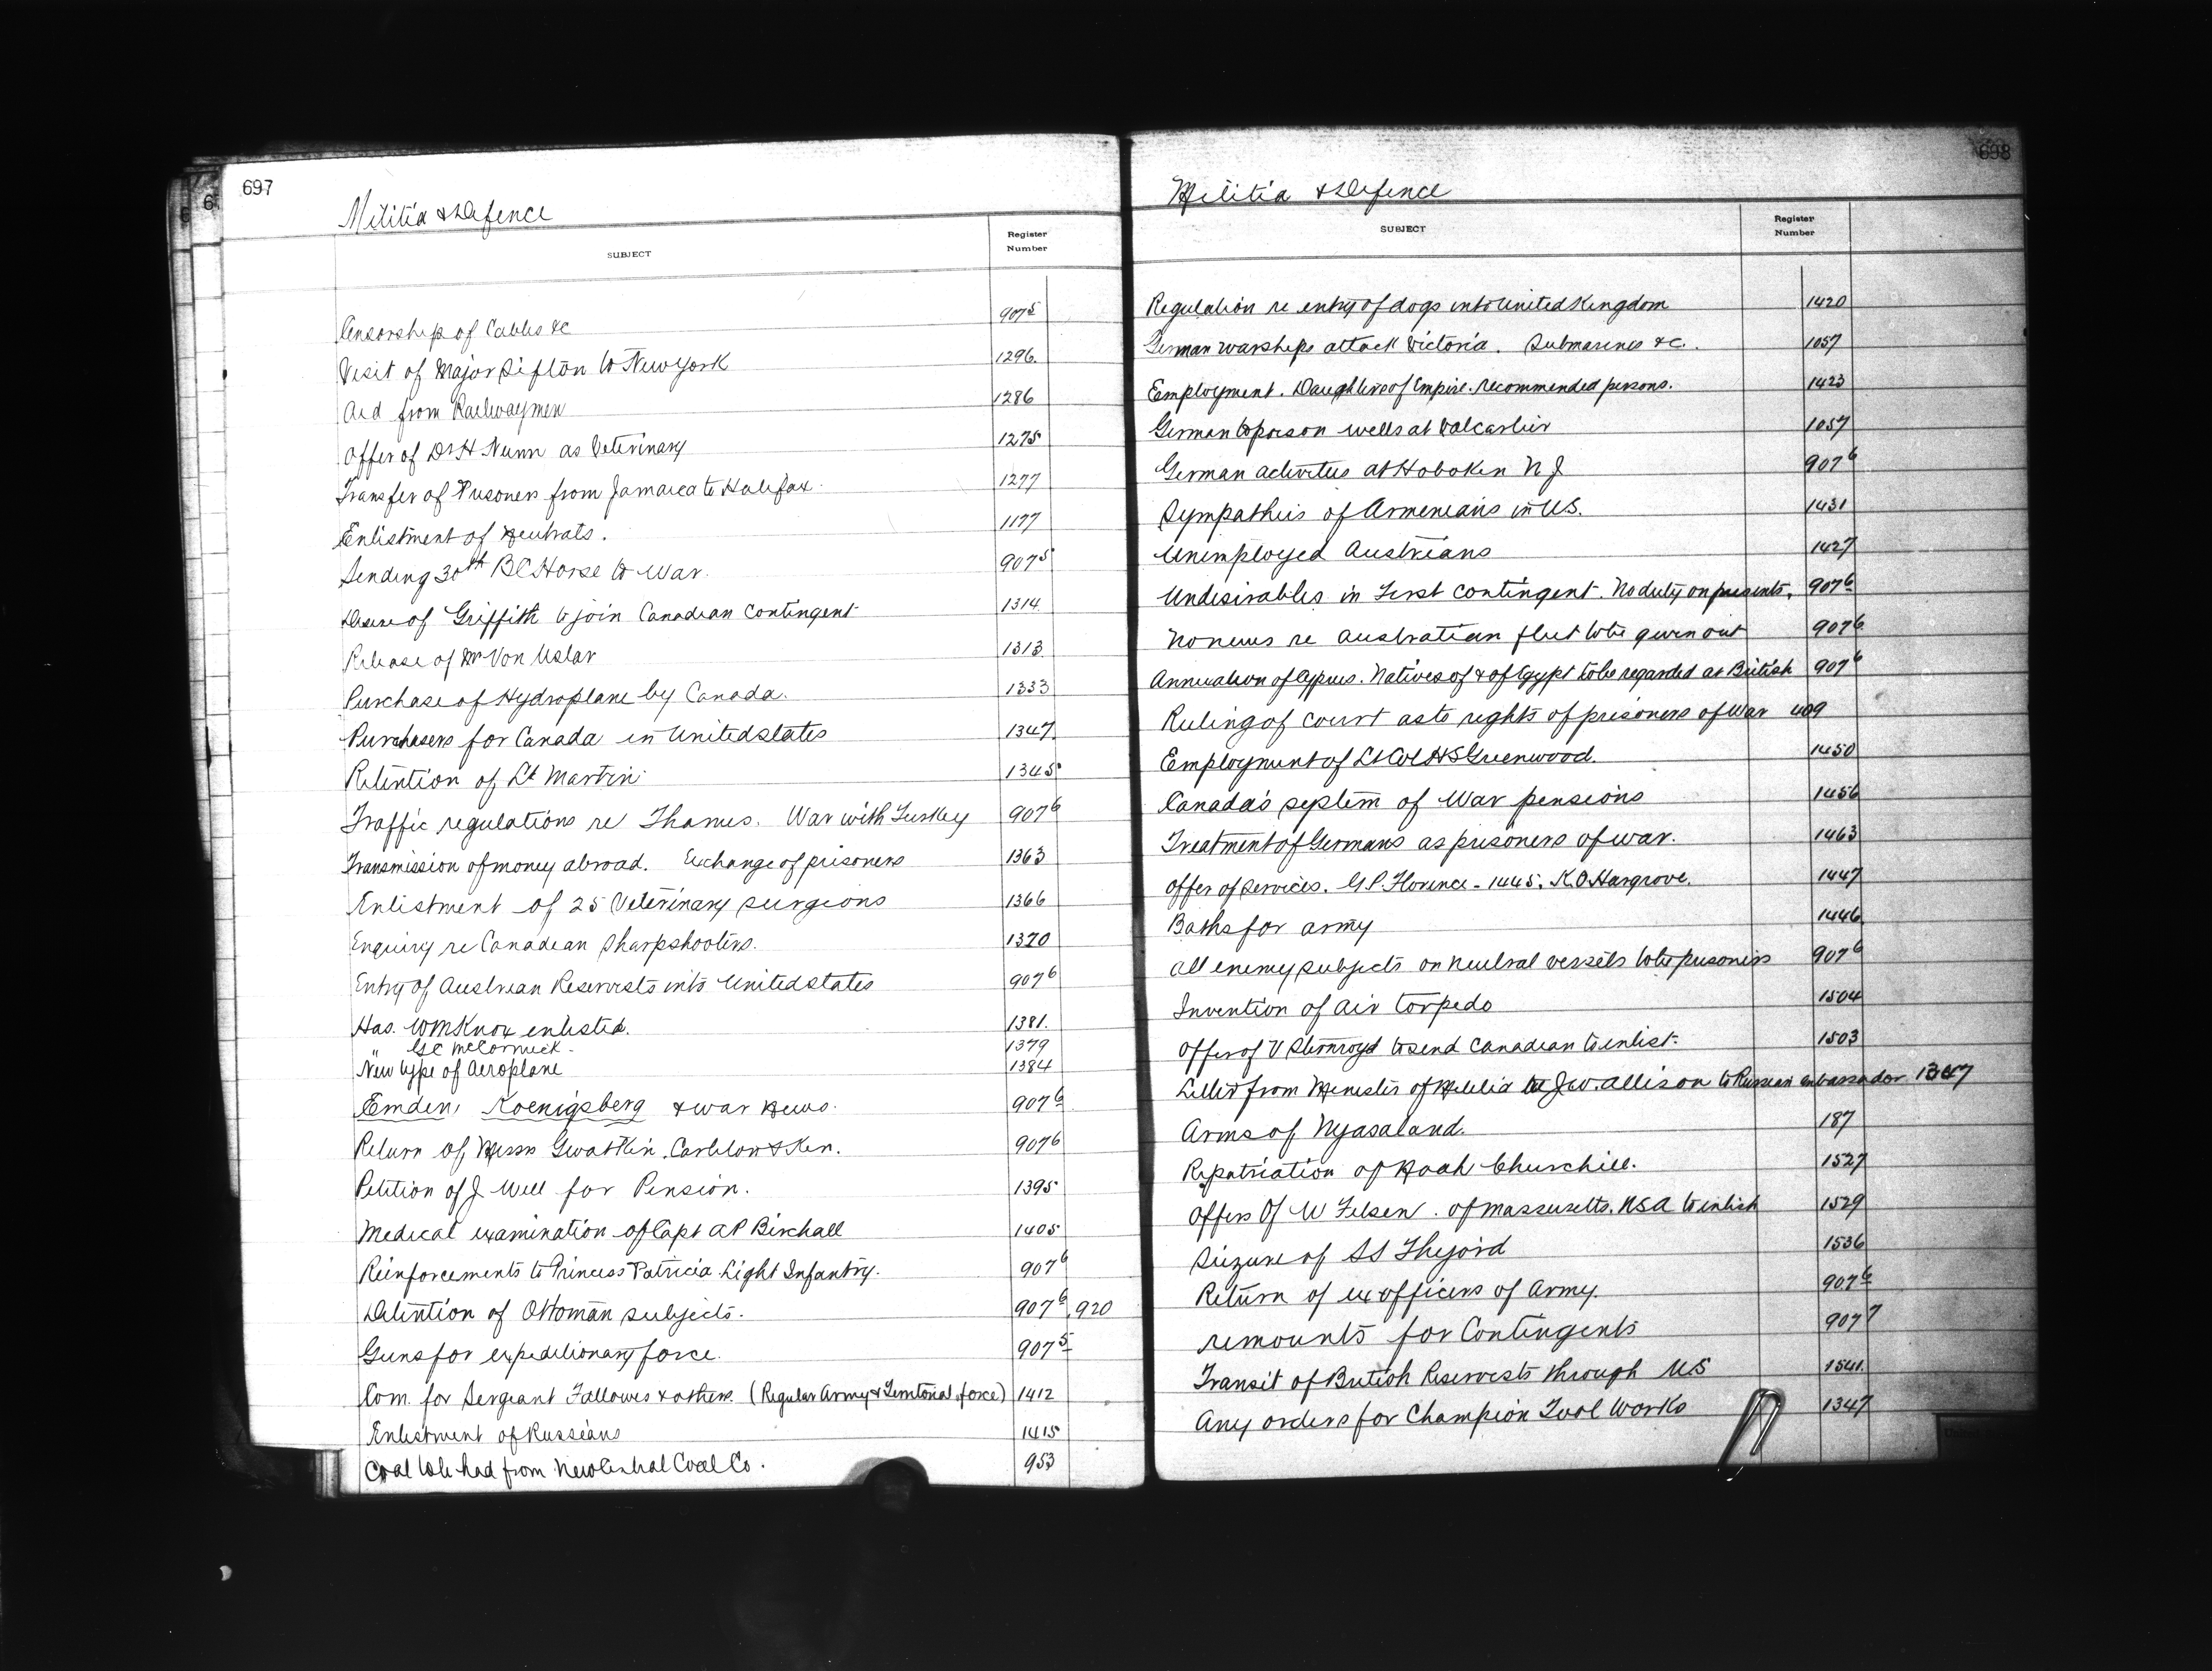 697
Militia & Defence
SUBJECT
Register Number
Censorship of Cables &c 907⁵
Visit of Major Sifton to New York 1296.
Aid from Railwaymen 1286
Offer of Dr H Nunn as Veterinary 1275
Transfer of Prisoners from Jamaica to Halifax. 1277
Enlistment of Neutrals. 1177
Sending 30th BC Horse to War. 907⁵
Desire of Griffith to join Canadian Contingent 1314
Release of Mr Von Uslar 1313
Purchase of Hydroplane by Canada. 1333
Purchasers for Canada in United states 1347
Retention of Lt Martin 1345
Traffic regulations re Thames. War with Turkey 907⁶
Transmission of money abroad. Exchange of prisoners 1363
Enlistment of 25 Veterinary surgeons 1366
Enquiry re Canadian Sharpshooters. 1370
Entry of Austrian Reservists into United states 907⁶
Has. WM Knox enlisted. 1381.
" GC McCormick. 1379
New type of Aeroplane 1384
Emden, Koenigsberg & war News. 907⁶
Return of Messrs Gwatkin, Carleton & Ken. 907⁶
Petition of J Well for Pension. 1395
Medical examination of Capt AP Birchall 1405
Reinforcements to Princess Patricia Light Infantry. 907⁶
Detention of Ottoman subjects. 907⁶, 920
Guns for expeditionary force. 907⁵
Com. for Sergeant Fallowes & others. (Regular Army & Territorial force) 1412
Enlistment of Russians 1415
Coal to be had from New Central Coal Co. 953
698
Militia & Defence
SUBJECT
Register Number
Regulation re entry of dogs into United Kingdom 1420
German warships attack Victoria. Submarines &c. 1057
Employment. Daughters of Empire. recommended persons. 1423
German to poison wells at Valcartier 1057
German activities at Hoboken N J 907⁶
Sympathies of Armenians in US. 1431
Unemployed Austrians 1427
Undesirables in First Contingent. No duty on presents. 907⁶
No news re Australian fleet to be given out 907⁶
Annexation of Cyprus. Natives of & of Egypt to be regarded as British 907⁶
Ruling of court as to rights of prisoners of War 409
Employment of Lt Col HS Greenwood. 1450
Canada's system of War pensions 1456
Treatment of Germans as prisoners of war. 1463
Offer of Services. G.P. Florence - 1445. K.O. Hargrove. 1447
Baths for army 1446
All enemy subjects on neutral vessels to be prisoners 907⁶
Invention of Air torpedo 1504
Offer of V to send Canadian to enlist. 1503
Letter from Minister of Militia to J.W. Allison to Russian Ambassador 1347
Arms of Nyasaland. 187
Repatriation of Noah Churchill. 1527
Offers Of W Felsen. of Massusetts. USA to enlist 1529
Siezure of SS 1536
Return of ex officers of Army. 907⁶
remounts for Contingents 907⁷
Transit of British Reservists through US 1541.
Any orders for Champion Tool Works 1347